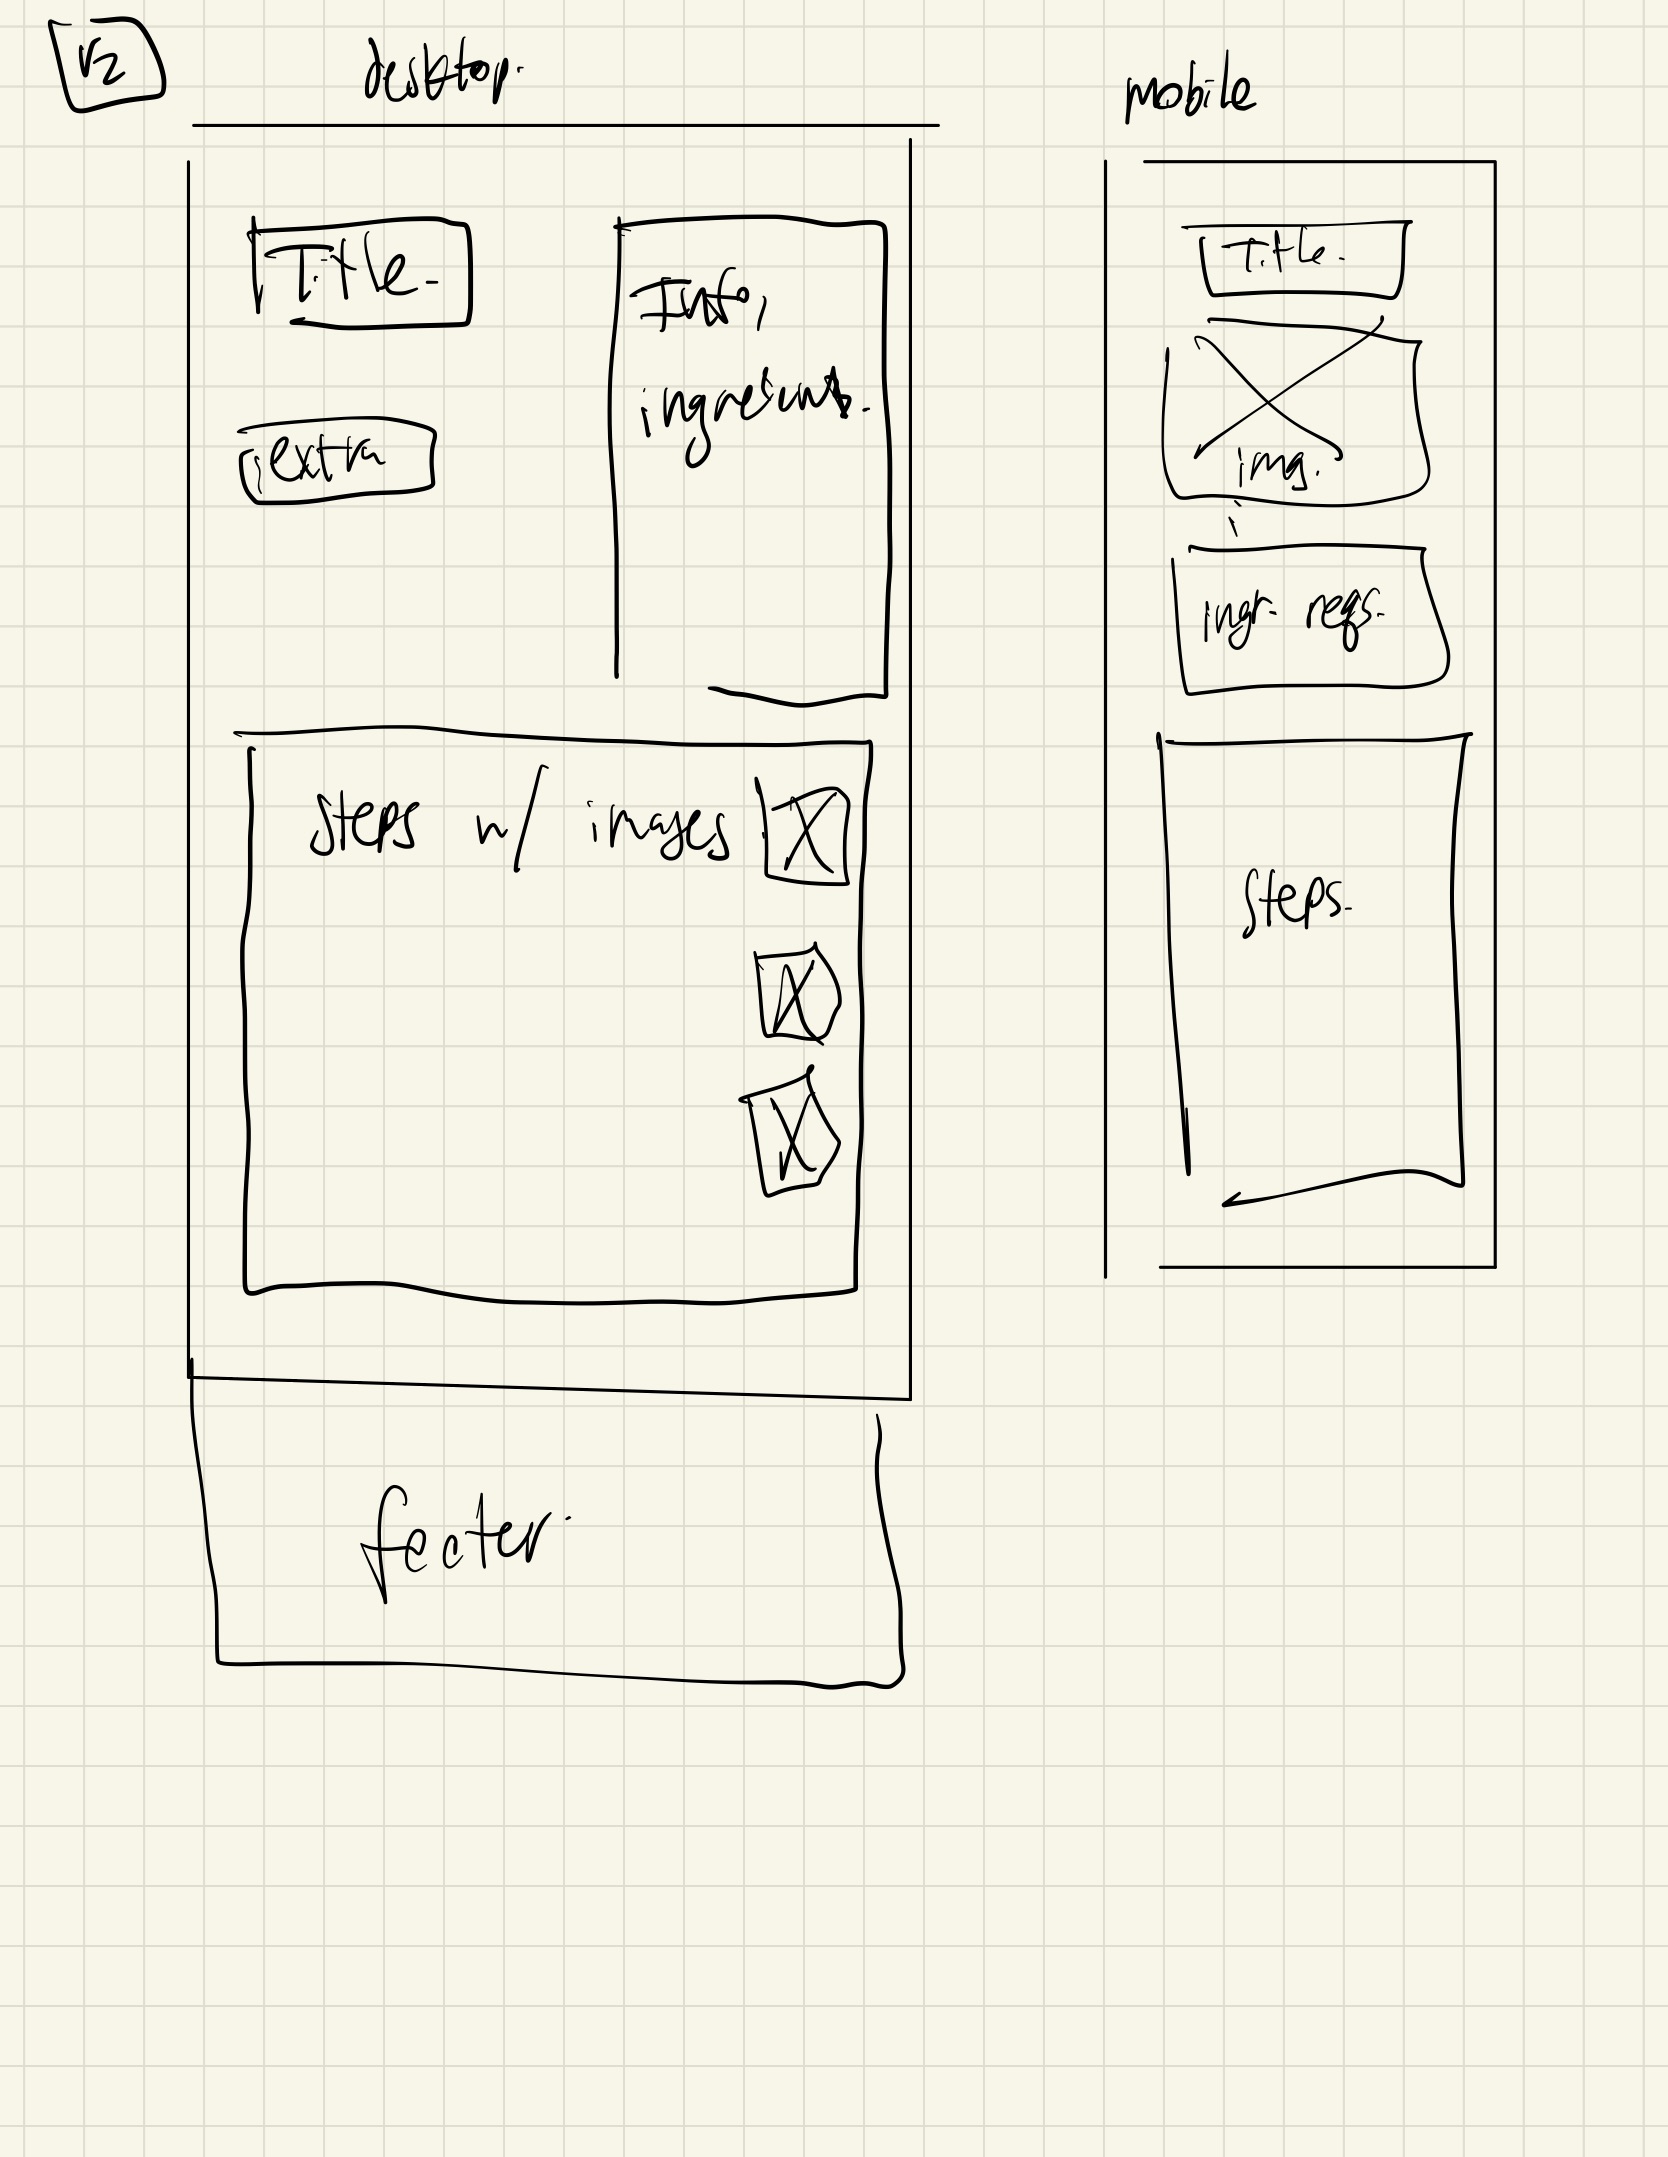 V2
desktop.
Title.
extra
Info,
ingredients.
steps w/ images
footer.
mobile
Title.
img.
ingr. reqs.
steps.